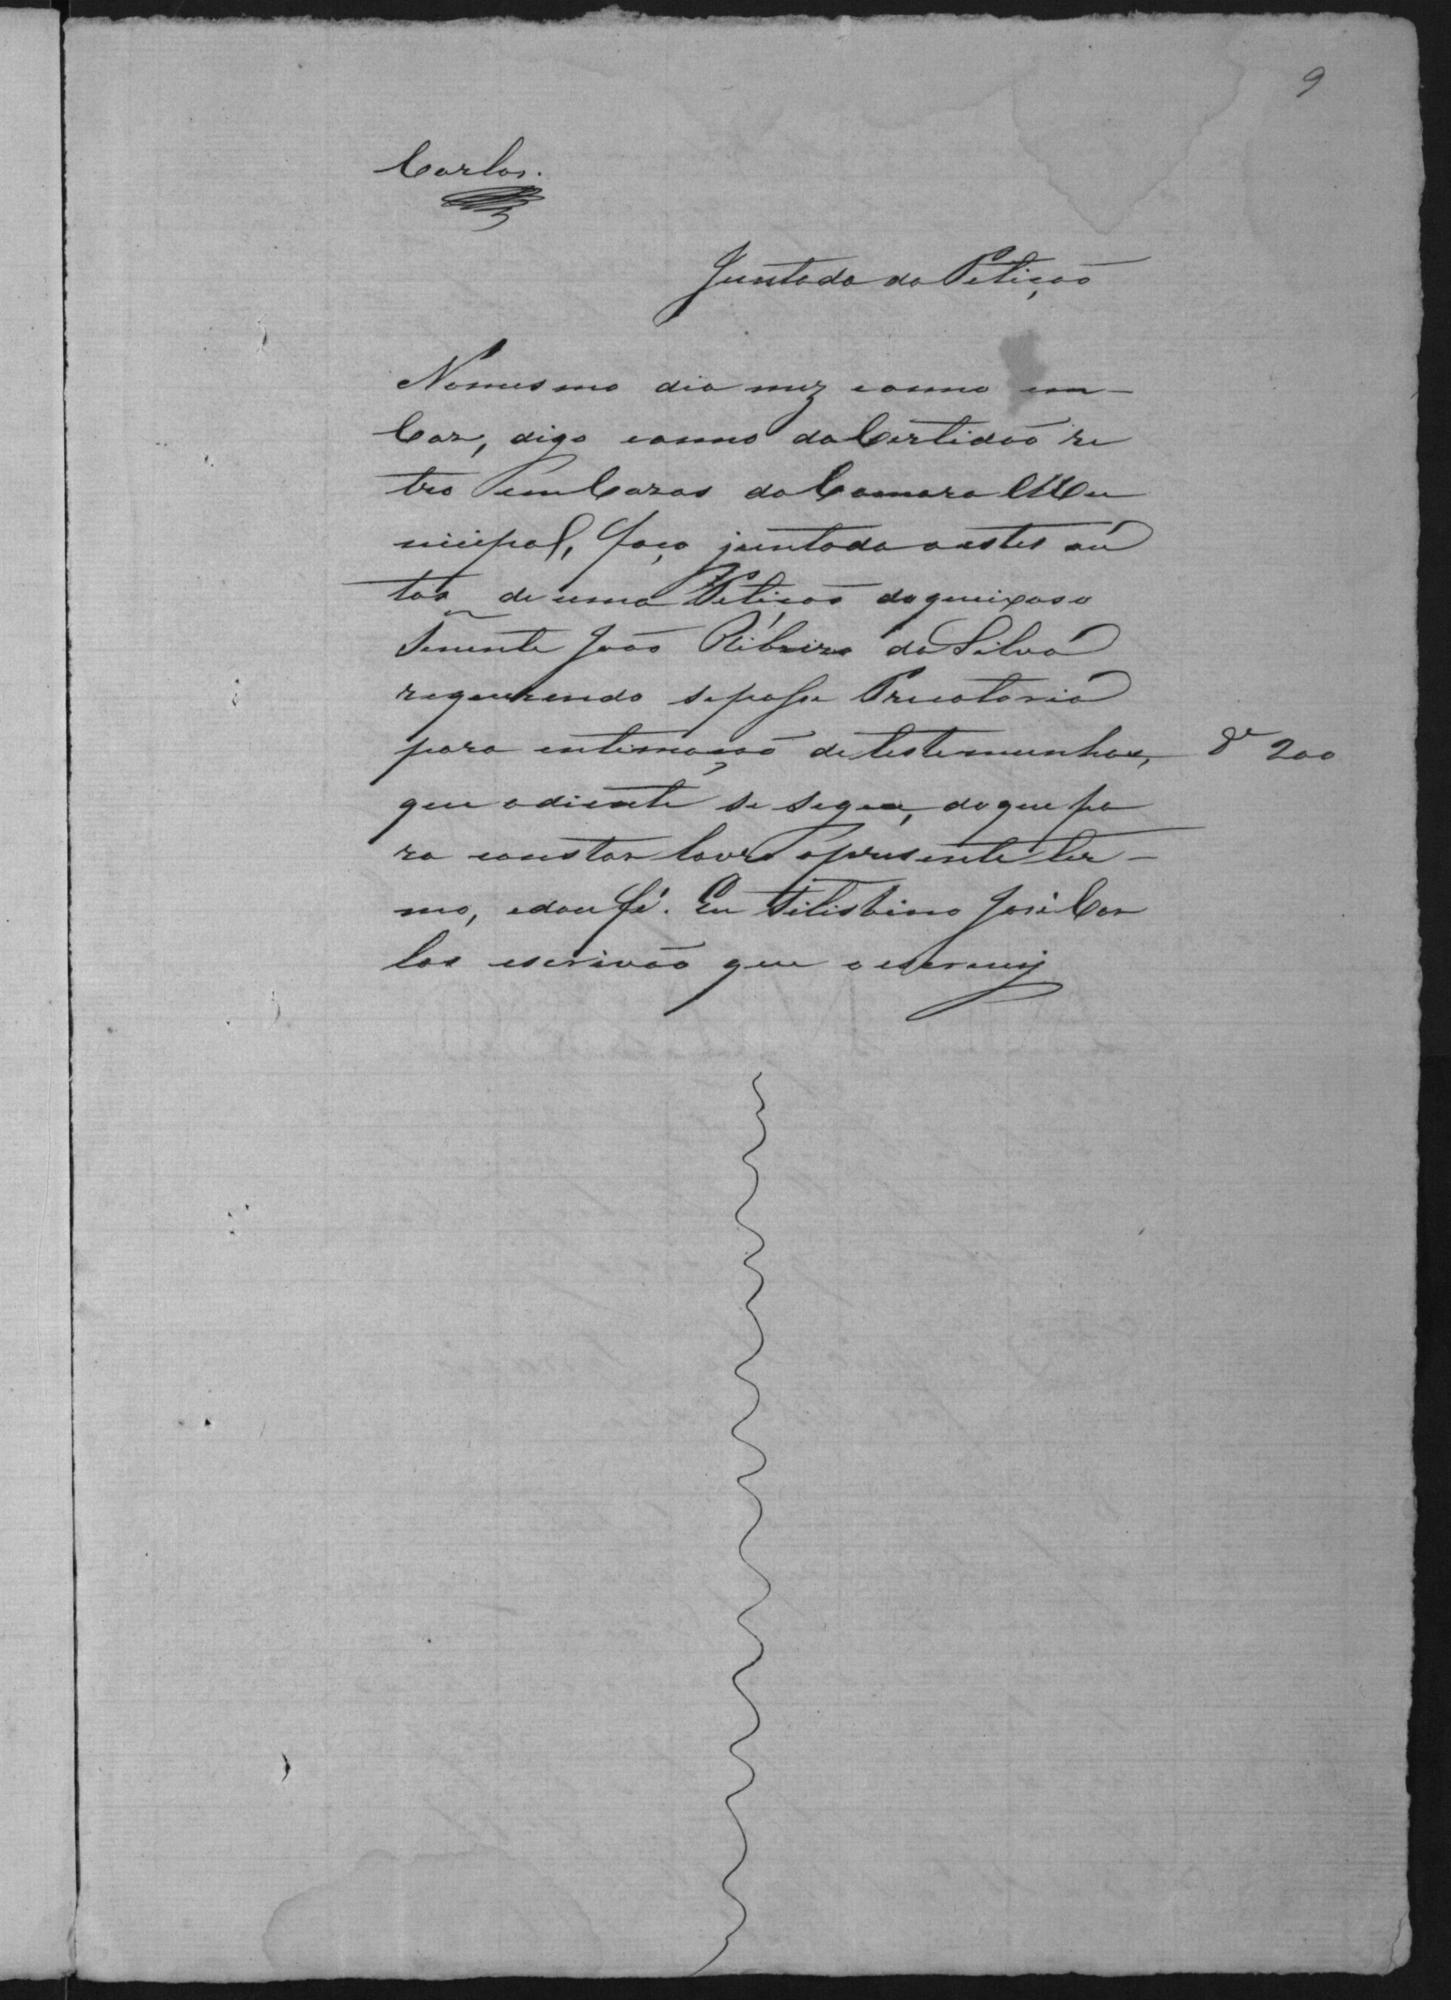 9
Carlos.
Juntada da Petição
No mesmo dia mez e anno em
Caz, digo e anno da Certidão re
tro em Cazas da Camara Mu
nicipal, faço juntada a estes áu
tos de uma Petição do queixoso
Tenente João Ribeiro da Silva
requerendo se passe Precatoria
para intimação de testemunhas,
200
que adiante se segue, do que pa
ra constar lavro o presente ter-
mo, e dou fé. Eu Filisbino José Car
los escrivão que o escrevy